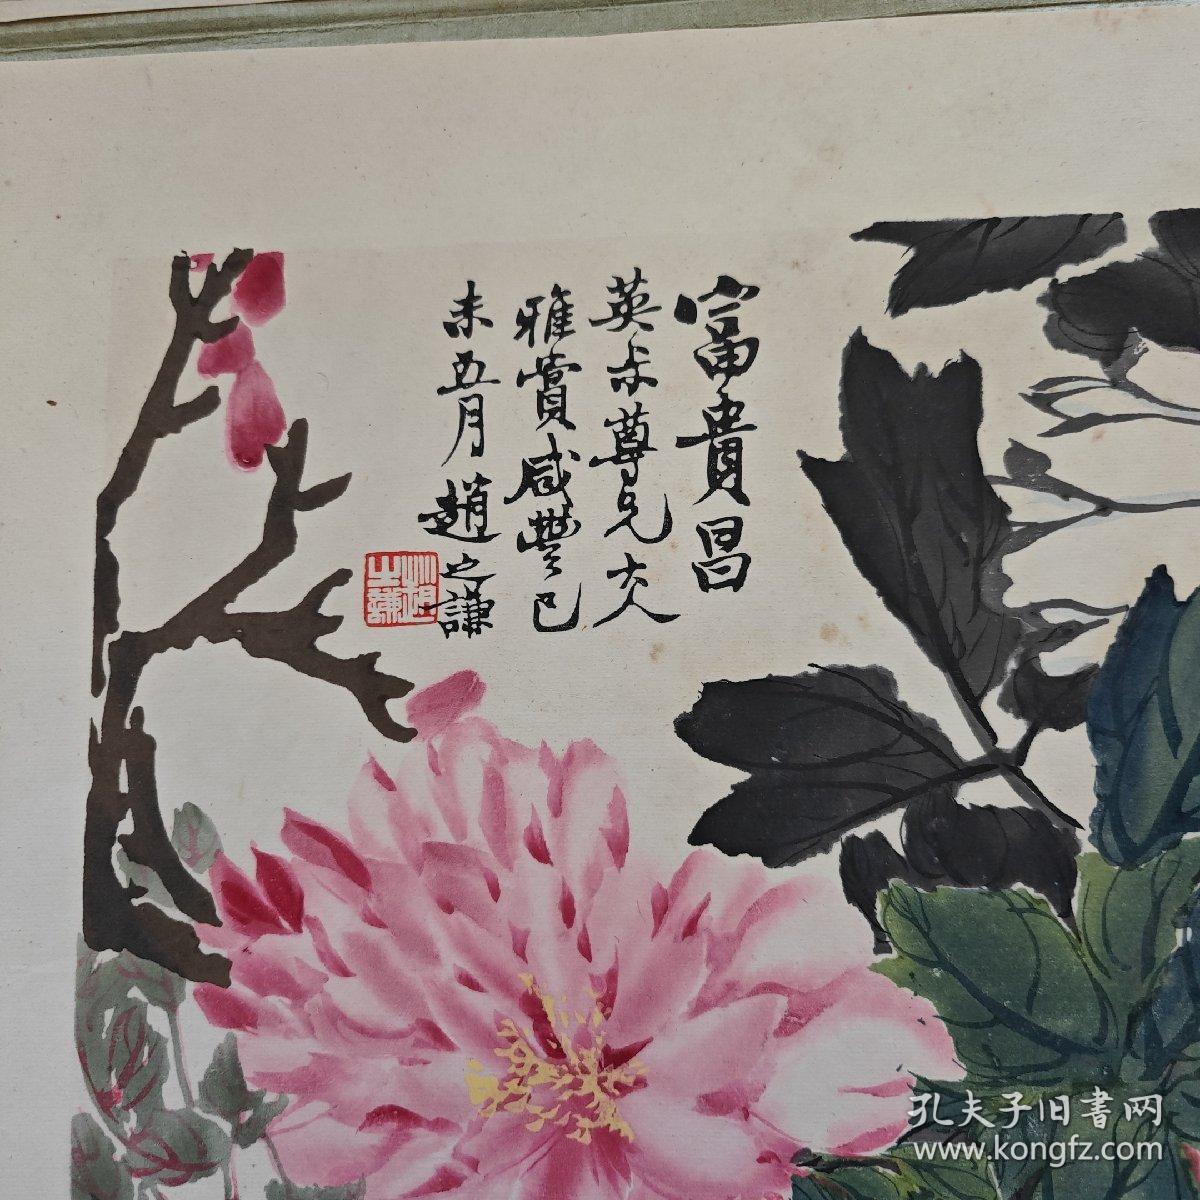 富貴昌
英尗尊兄大人
雅賞咸豐己
未五月趙之謙
趙之謙
孔夫子旧書网
www.kongfz.com